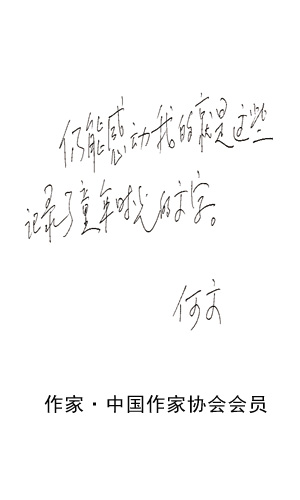 仍能感动我的就是这些
记录了童年时光的文字。
何文
作家·中国作家协会会员